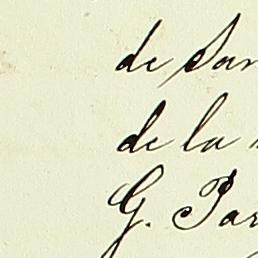 de San
de la
G. Par